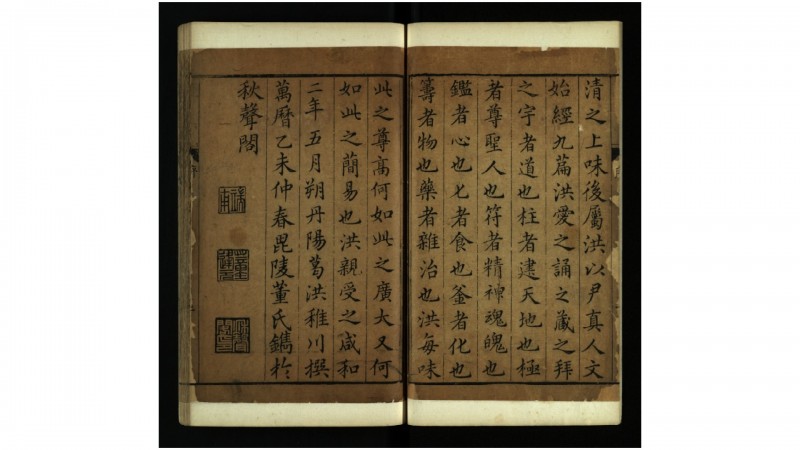 清之上味後屬洪以尹真人文
始經九篇洪愛之誦之藏之拜
之宇者道也柱者建天地也極
者尊聖人也符者精神魂魄也
鑑者心也匕者食也釜者化也
籌者物也藥者雜治也洪每味
此之尊髙何如此之廣大又何
如此之簡易也洪親受之咸和
二年五月朔丹陽葛洪稚川撰
萬曆乙未仲春毘陵董氏鐫於
秋聲閣